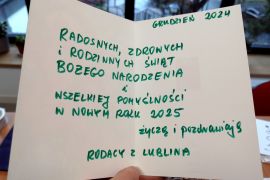 GRUDZIEŃ 2024
RADOSNYCH, ZDROWYCH
i RODZINNYCH ŚWIĄT
BOŻEGO NARODZENIA
&
WSZELKIEJ POMYŚLNOŚCI
W NOWYM ROKU 2025
życzą i pozdrawiają
RODACY Z LUBLINA